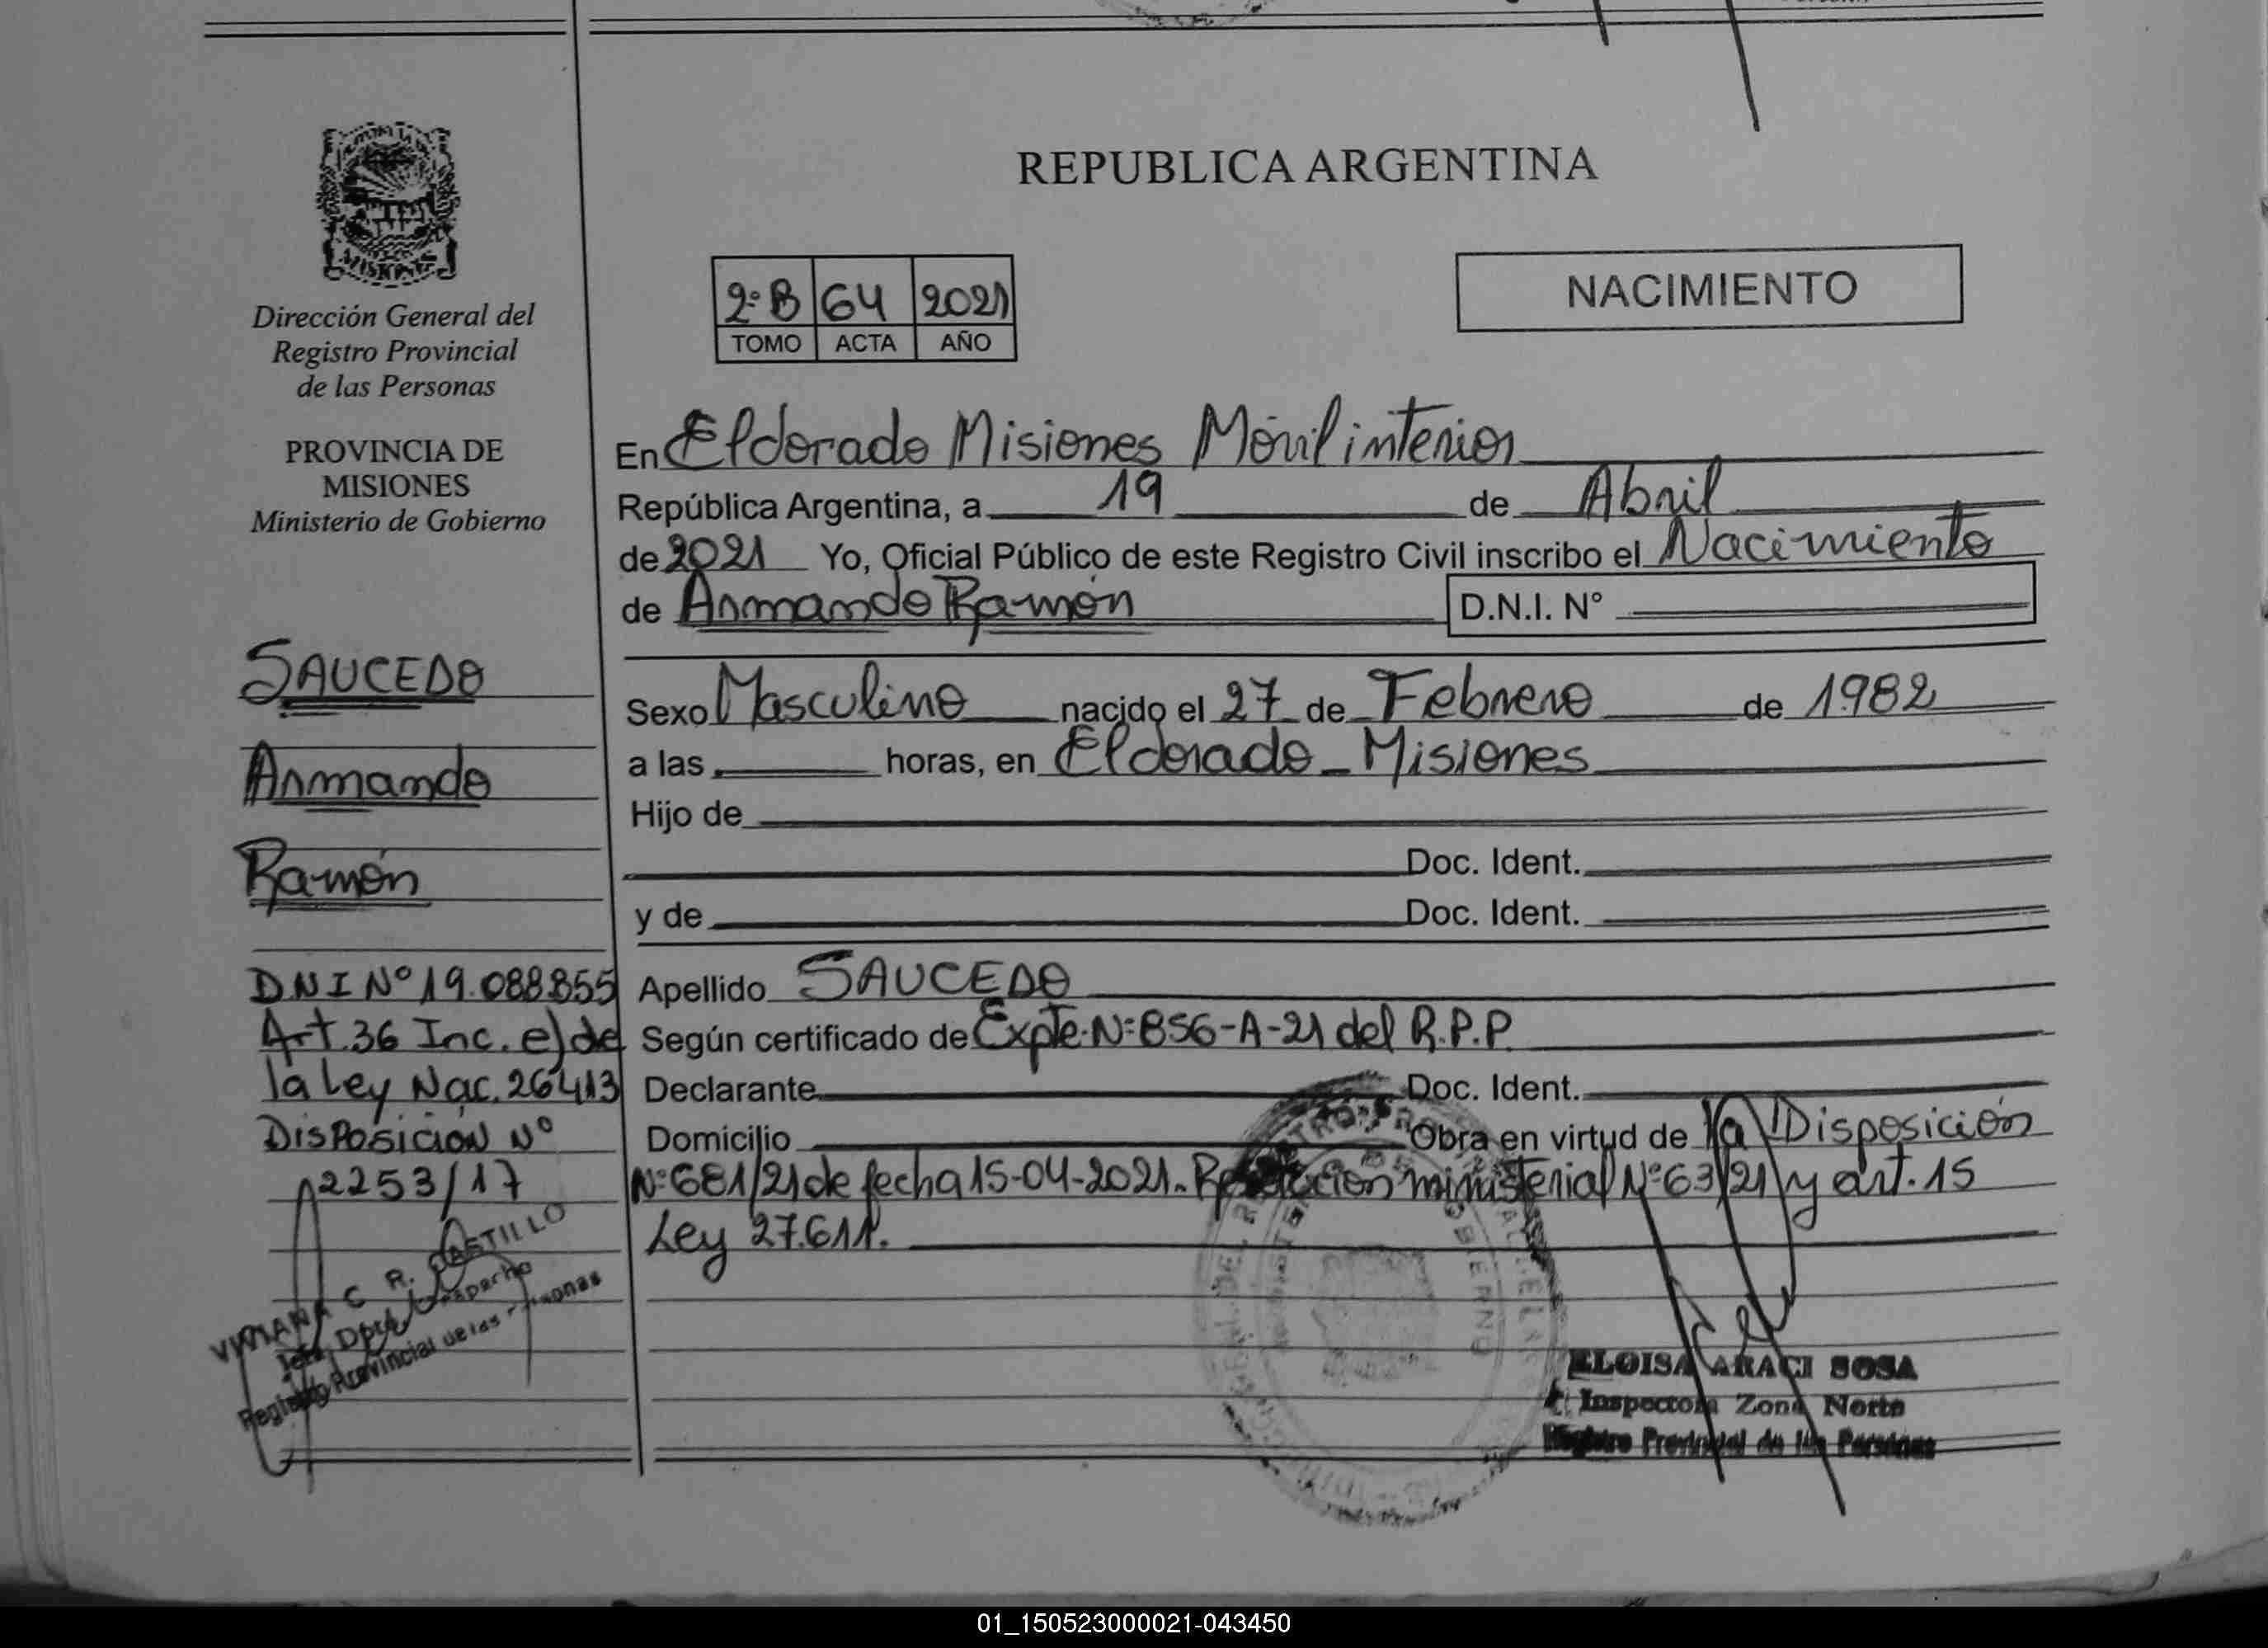 REPUBLICA ARGENTINA
2º B 64 2021
TOMO ACTA AÑO
NACIMIENTO
MISIONES
Dirección General del
Registro Provincial
de las Personas
PROVINCIA DE
MISIONES
Ministerio de Gobierno
SAUCEDO
Armando
Ramón
D.N.I Nº 19.088.855
Art. 36 Inc. e) de
la Ley Nac. 26413
DISPOSICION Nº
2253/17
VIVIANA C. R. CASTILLO
Jefa Dpto Despacho
Registro Provincial de las Personas
En Eldorado Misiones Móvil interior
República Argentina, a 19 de Abril
de 2021 Yo, Oficial Público de este Registro Civil inscribo el Nacimiento
de Armando Ramón D.N.I. Nº
Sexo Masculino nacido el 27 de Febrero de 1982
a las horas, en Eldorado - Misiones
Hijo de
Doc. Ident.
y de Doc. Ident.
Apellido SAUCEDO
Según certificado de Expte. Nº 856-A-21 del R.P.P.
Declarante Doc. Ident.
Domicilio Obra en virtud de la Disposición
Nº 681/21 de fecha 15-04-2021. Resolución ministerial Nº 63/21 y art. 15
Ley 27.611.
ELOISA ARACI SOSA
Inspectora Zona Norte
Registro Provincial de las Personas
01_150523000021-043450